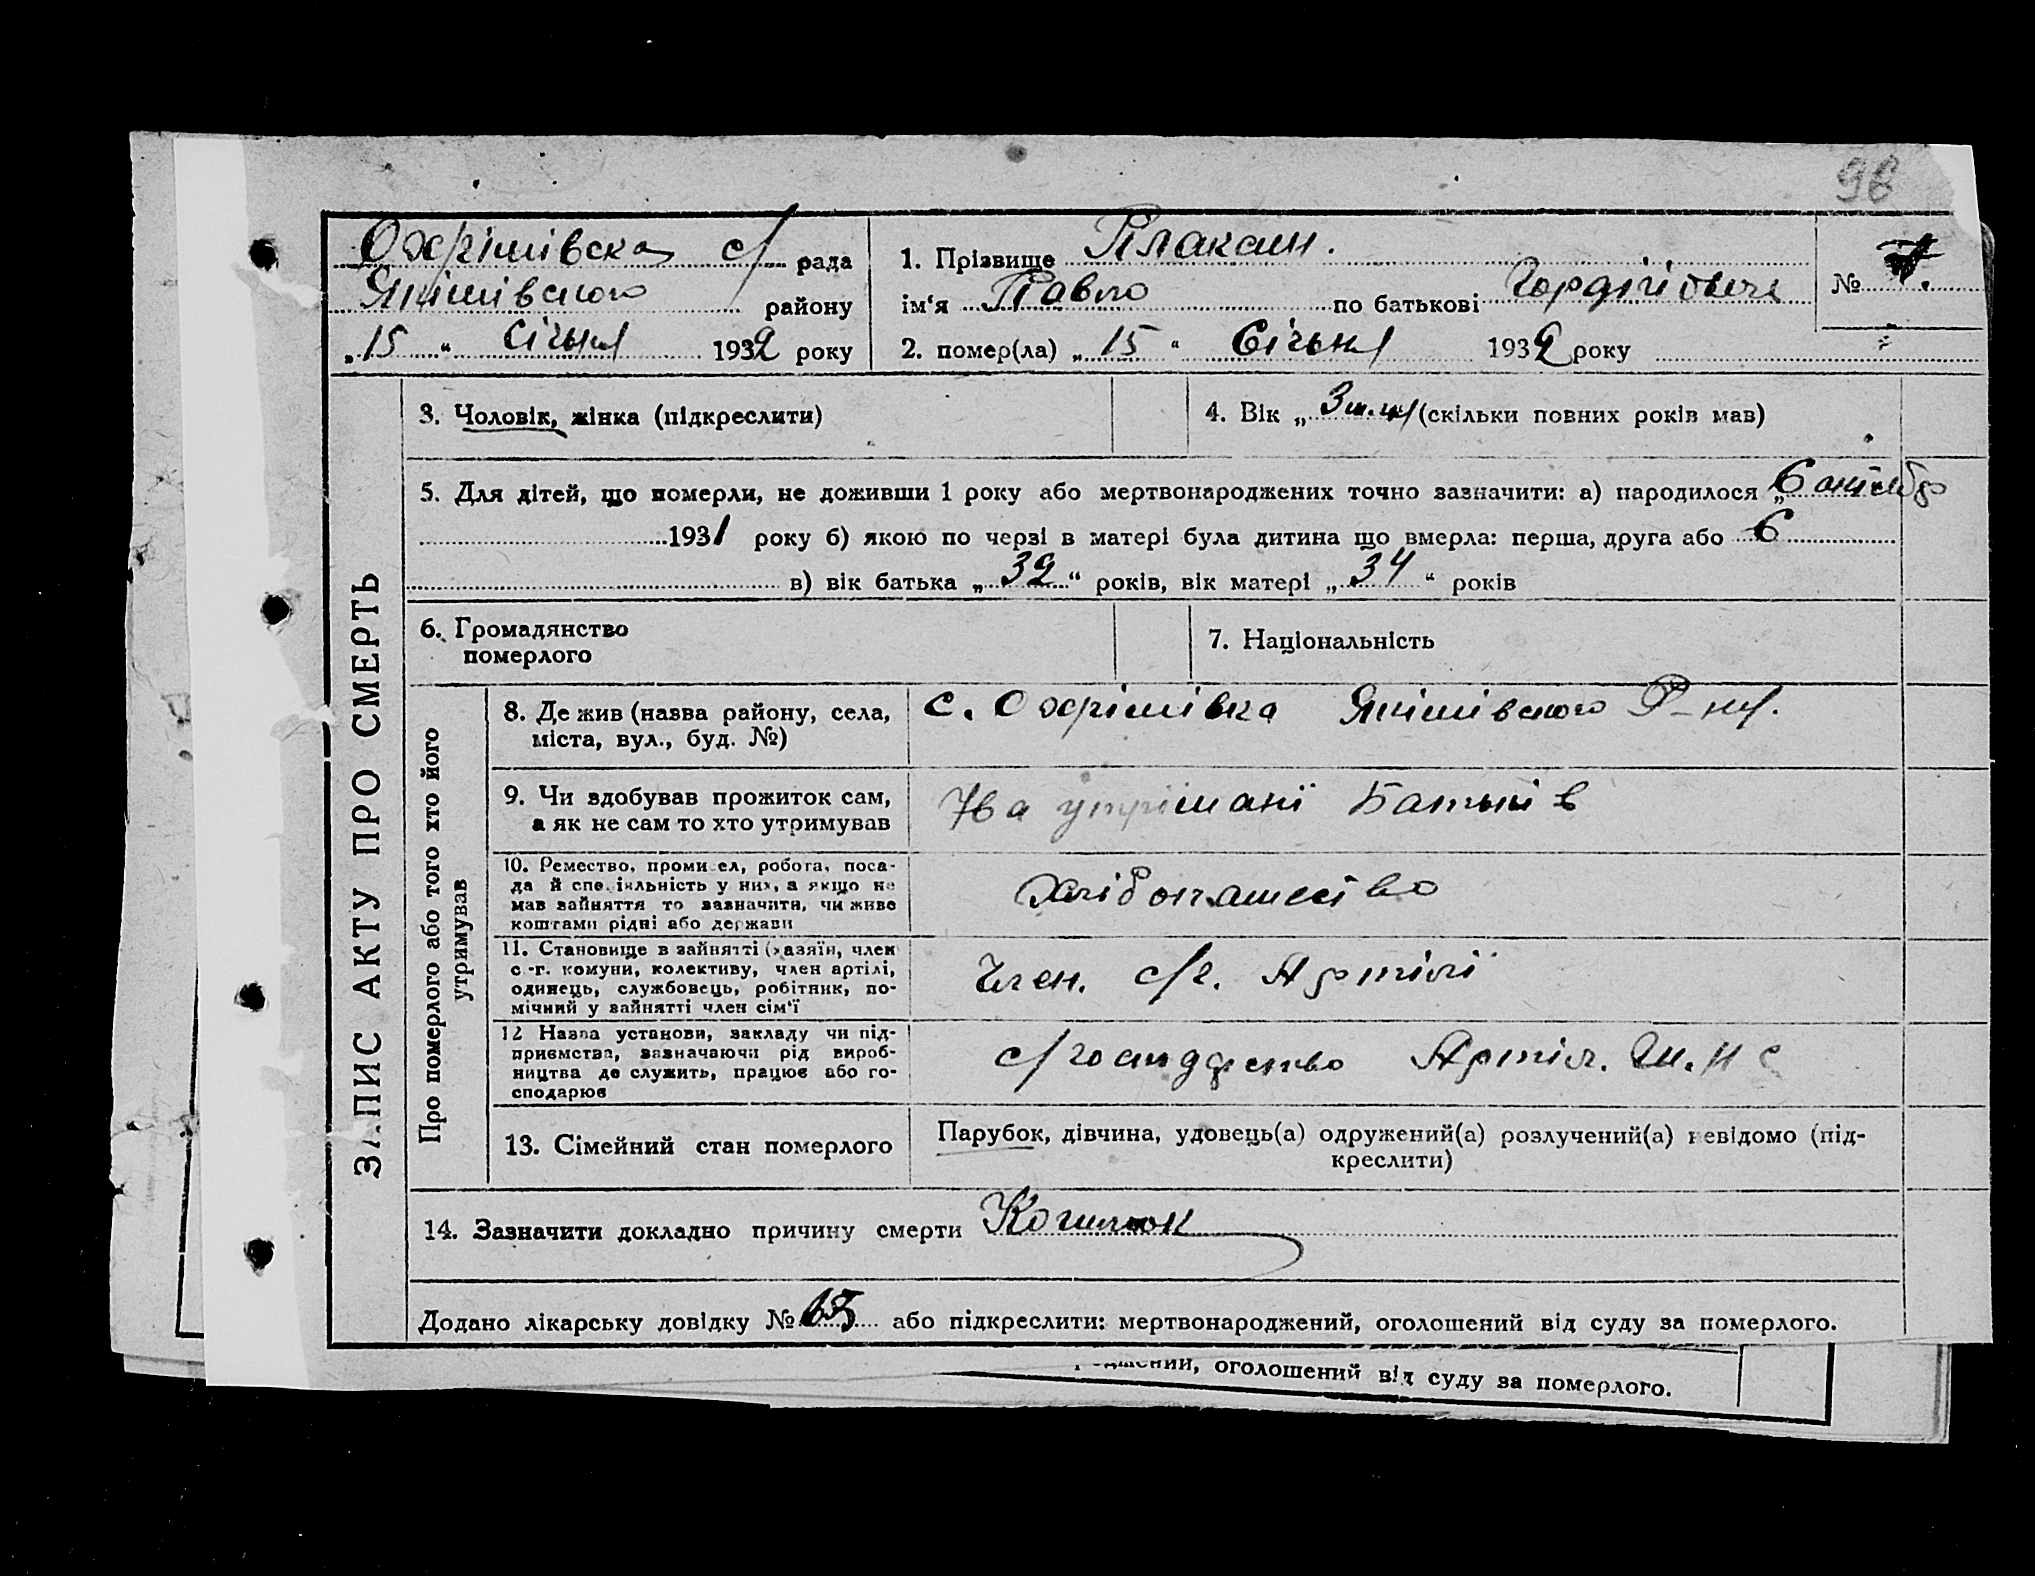 98
Охрімівска с/ рада
Якімівского району
„15“ Січня 1932 року
1. Прізвище Плаксин.
ім‘я Павло по батькові Гордіїович
№ 7.
2. помер(ла) „15“ Січня 1932 року
ЗАПИС АКТУ ПРО СМЕРТЬ
3. Чоловік, жінка (підкреслити)
4. Вік „ 3 м-ця (скільки повних років мав)
5. Для дітей, що померли, не доживши 1 року або мертвонароджених точно зазначити: а) народилося „6 октябр
1931 року б) якою по черзі в матері була дитина що вмерла: перша, друга або 6
в) вік батька „32“ років, вік матері „34“ років
6. Громадянство
померлого
7. Національність
Про померлого або того хто його
утримував
8. Де жив (назва району, села,
міста, вул., буд. №)
с. Охрімівка Якімівского Р-ну.
9. Чи здобував прожиток сам,
а як не сам то хто утримував
На утріманї Батьків
10. Ремество, промисел, робота, поса-
да й спеціяльність у них, а якщо не
мав зайняття то зазначити, чи живе
коштами рідні або держави
Хлібопашество
11. Становище в зайнятті (хазяїн, член
с-г. комуни, колективу, член артілі,
одинець, службовець, робітник, по-
мічний у зайнятті член сім‘ї
Член. с/г. Артілї
12 Назва установи, закладу чи під-
приємства, зазначаючи рід вироб-
ництва де служить, працює або го-
сподарює
с/господрство Артіл.
13. Сімейний стан померлого
Парубок, дівчина, удовець(а) одружений(а) розлучений(а) невідомо (під-
креслити)
14. Зазначити докладно причину смерти Когилюк
Додано лікарську довідку № або підкреслити: мертвонароджений, оголошений від суду за померлого.
оголошений від суду за померлого.